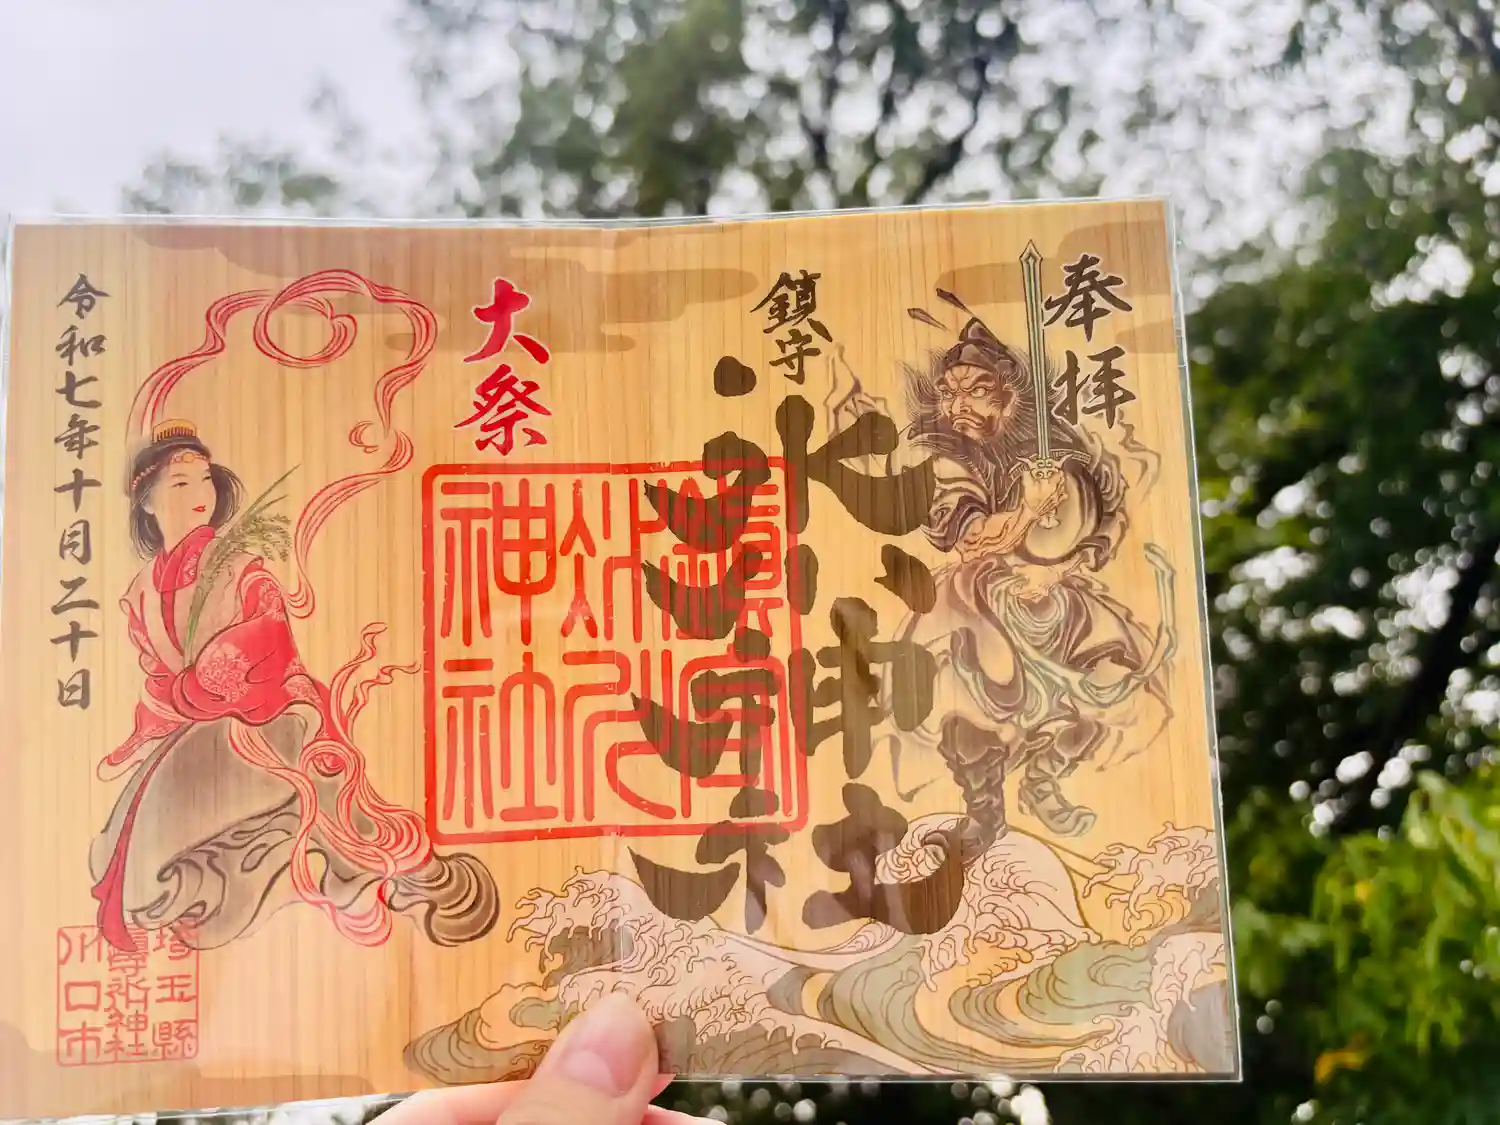 奉拝
鎮守
氷川神社
鎮守
氷川
神社
大祭
令和七年十月二十日
埼玉縣
鎮守氷川神社
川口市